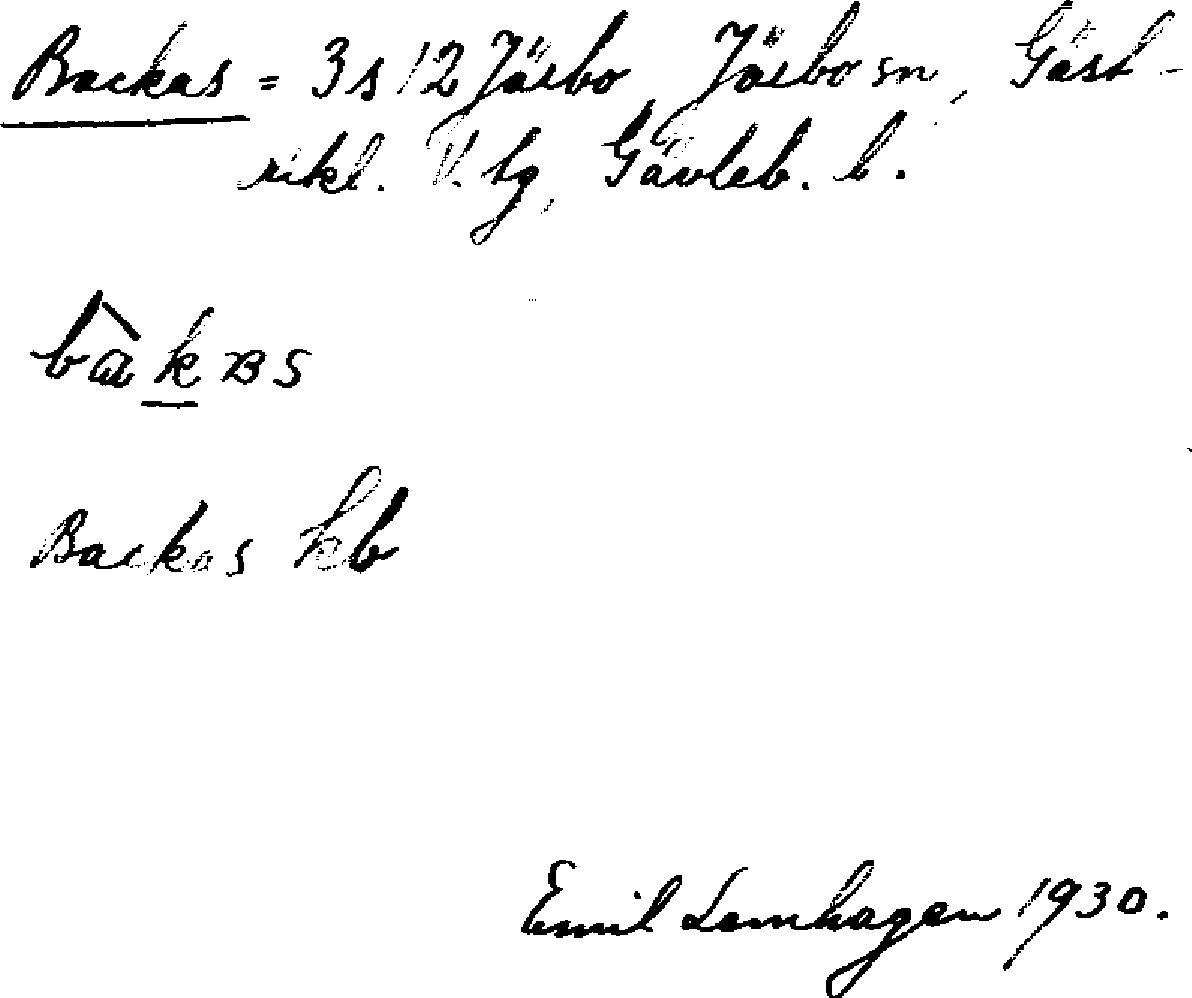 Backas = 3s12 Järbo, Järbo sn, Gäst-
rikl. V. tg, Gävleb. l.
bàkʙs
Backas kb
Emil Lemhagen 1930.